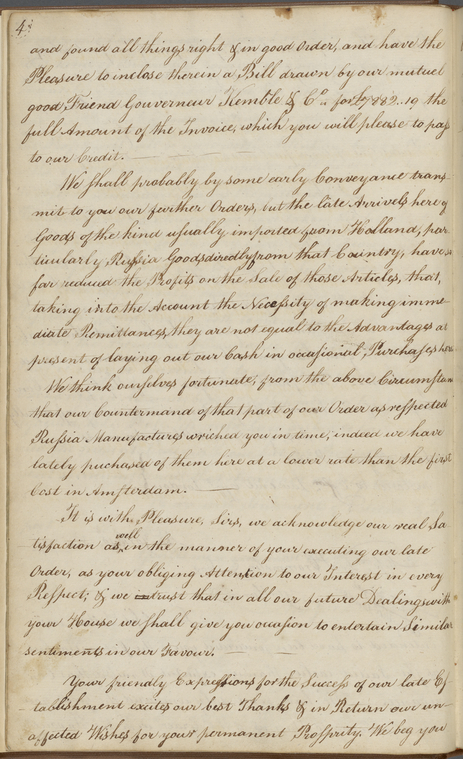 4
and found all things right & in good Order, and have the
Pleasure to inclose therein a Bill drawn by our mutual
good Friend Gouverneur Kemble & Co. for 7882..19 the
full Amount of the Invoice, which you will please to pass
to our Credit. —
We shall probably by some early Conveyance trans-
mit to you our further Orders, but the late Arrivels here of
Goods of the kind usually imported from Holland, par
ticularly Russia Goods directly from that Country, have so
far reduced the Profits on the Sale of those Articles, that,
taking into the Account the Nicessity of making imme
diate Remittances, they are not equal to the Advantages at
present of laying out our Cash in occasional Purchases here
We think ourselves fortunate, from the above Circumstan
that our Countermand of that part of our Order as respected
Russia Manufactures wriched you in time; indeed we have
lately puchased of them here at a lower rate than the first
Cost in Amsterdam. —
It is with Pleasure, Sirs, we acknowledge our real Sa
tisfaction as well in the manner of your executing our late
Order, as your obliging Attention to our Interest in every
Respect; & we trust that in all our future Dealings with
your House we shall give you occasion to entertain Similar
sentiments in our Favour. —
Your friendly Expressions for the Success of our late Es
tablishment excites our best Thanks & in Return our un-
affected Wishes for your permanent Prosprity. We beg you